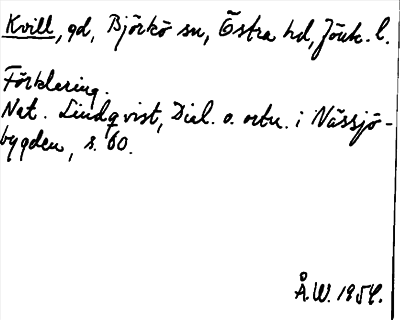 Kvill, gd, Björkö sn, Östra hd, Jönk. l.
Förklaring.
Nat. Lindqvist, Dial. o. ortn. i Nässjö-
bygden, s. 60.
Å.W. 1954.